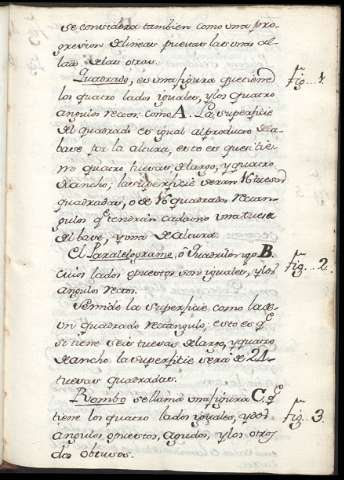 se considera tambien como una pro-
gresion de lineas puestas las unas al
lado de las otras.
Quadrado, es una figura que tiene
los quatro lados iguales, y los quatro
angulos rectos como A. La superficie
del quadrado es igual al producto de la
base por la altura, esto es que si tie-
ne quatro tuesas de largo, y quatro
de ancho, la superficie seran 16 tuesas
quadradas, o de 16 quadrados rectan-
gulos qe tendràn cada uno una tuesa
de base, y una de altura.
El Paralelograme, ó Quadrilongo B
cuios lados opuestos son iguales, y los
angulos rectos.
Se mide la superficie como la de
un quadrado rectangulo, esto es qe
si tiene seis tuesas de largo, y quatro
de ancho la superficie serà de 24
tuesas quadradas.
Rombo se llama una figura C, qe
tiene los quatro lados iguales, y dos
angulos opuestos, agudos, y los otros
dos obtusos.
fig. 1
fig. 2.
fig. 3.